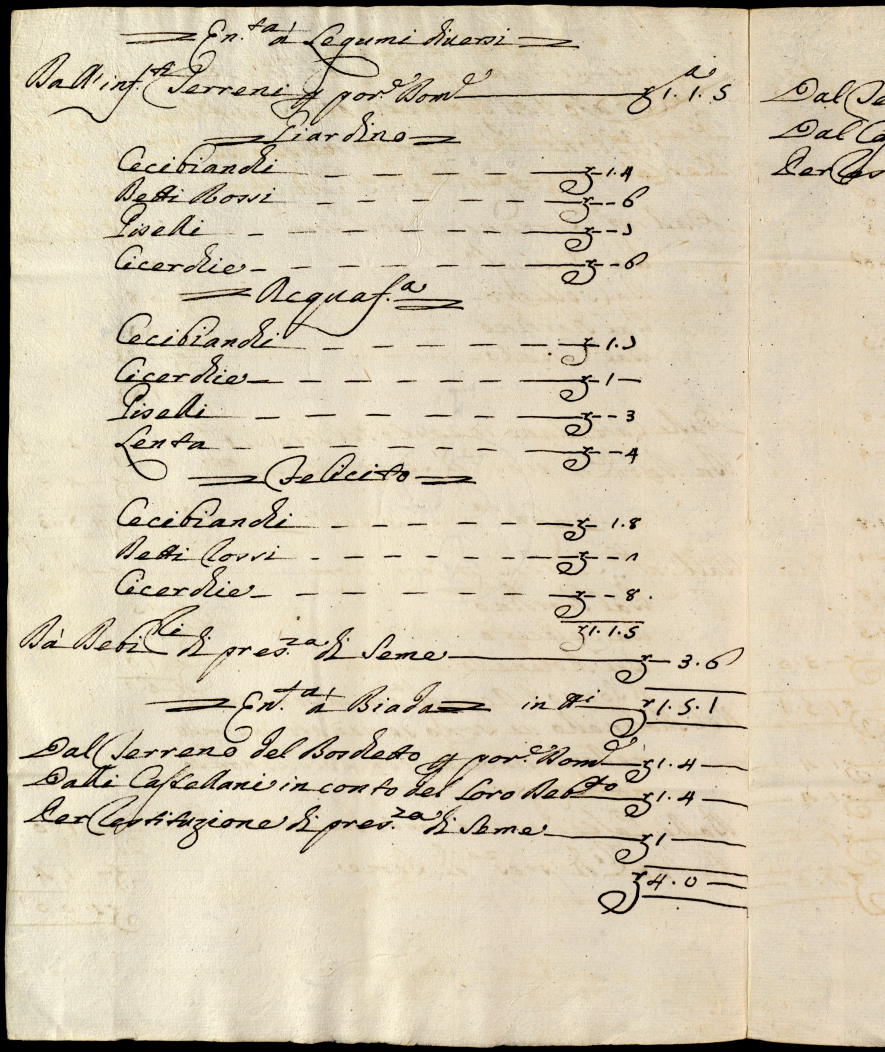 En.ta à Legumi diversi
Dall' inf.ti Terreni p por.e Dom.e 1.1.5
Giardino
Cecibianchi 1.4
Betti Rossi 6
Piselli
Cicerchie 6
Acquaf.a
Cecibianchi
Cicerchie 1
Piselli 3
Lenta 4
Felicito
Cecibianchi 1.8
Betti Rossi
Cicerchie 8.
1.1.5
Da Debi.li di pres.za di Seme 3.6
En.ta à Biada in tti 1.5.1
Dal Terreno del Boschetto p por.e Dom.e 1.4
Dalli Castellani in conto del Loro Deb.to 1.4
Per Restituzione di pres.za di Seme 1
4.0
Dal Te
Dal Ca
Per Res